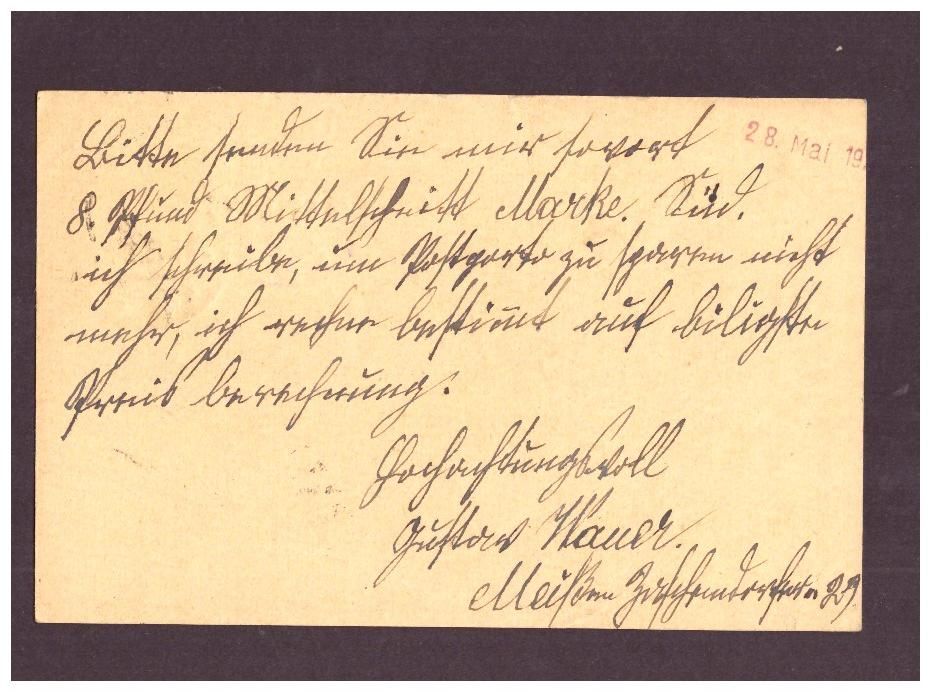 28. Mai 19
Bitte senden Sie mir sovort
8 Pfund Mittelschnitt Marke. Süd.
ich schreibe, um Postporto zu sparen nicht
mehr, ich rechne bestimmt auf biligste
Preis berechnung.
Hochachtungsvoll
Gustav Wauer.
Meißen Zaschendorfer 29